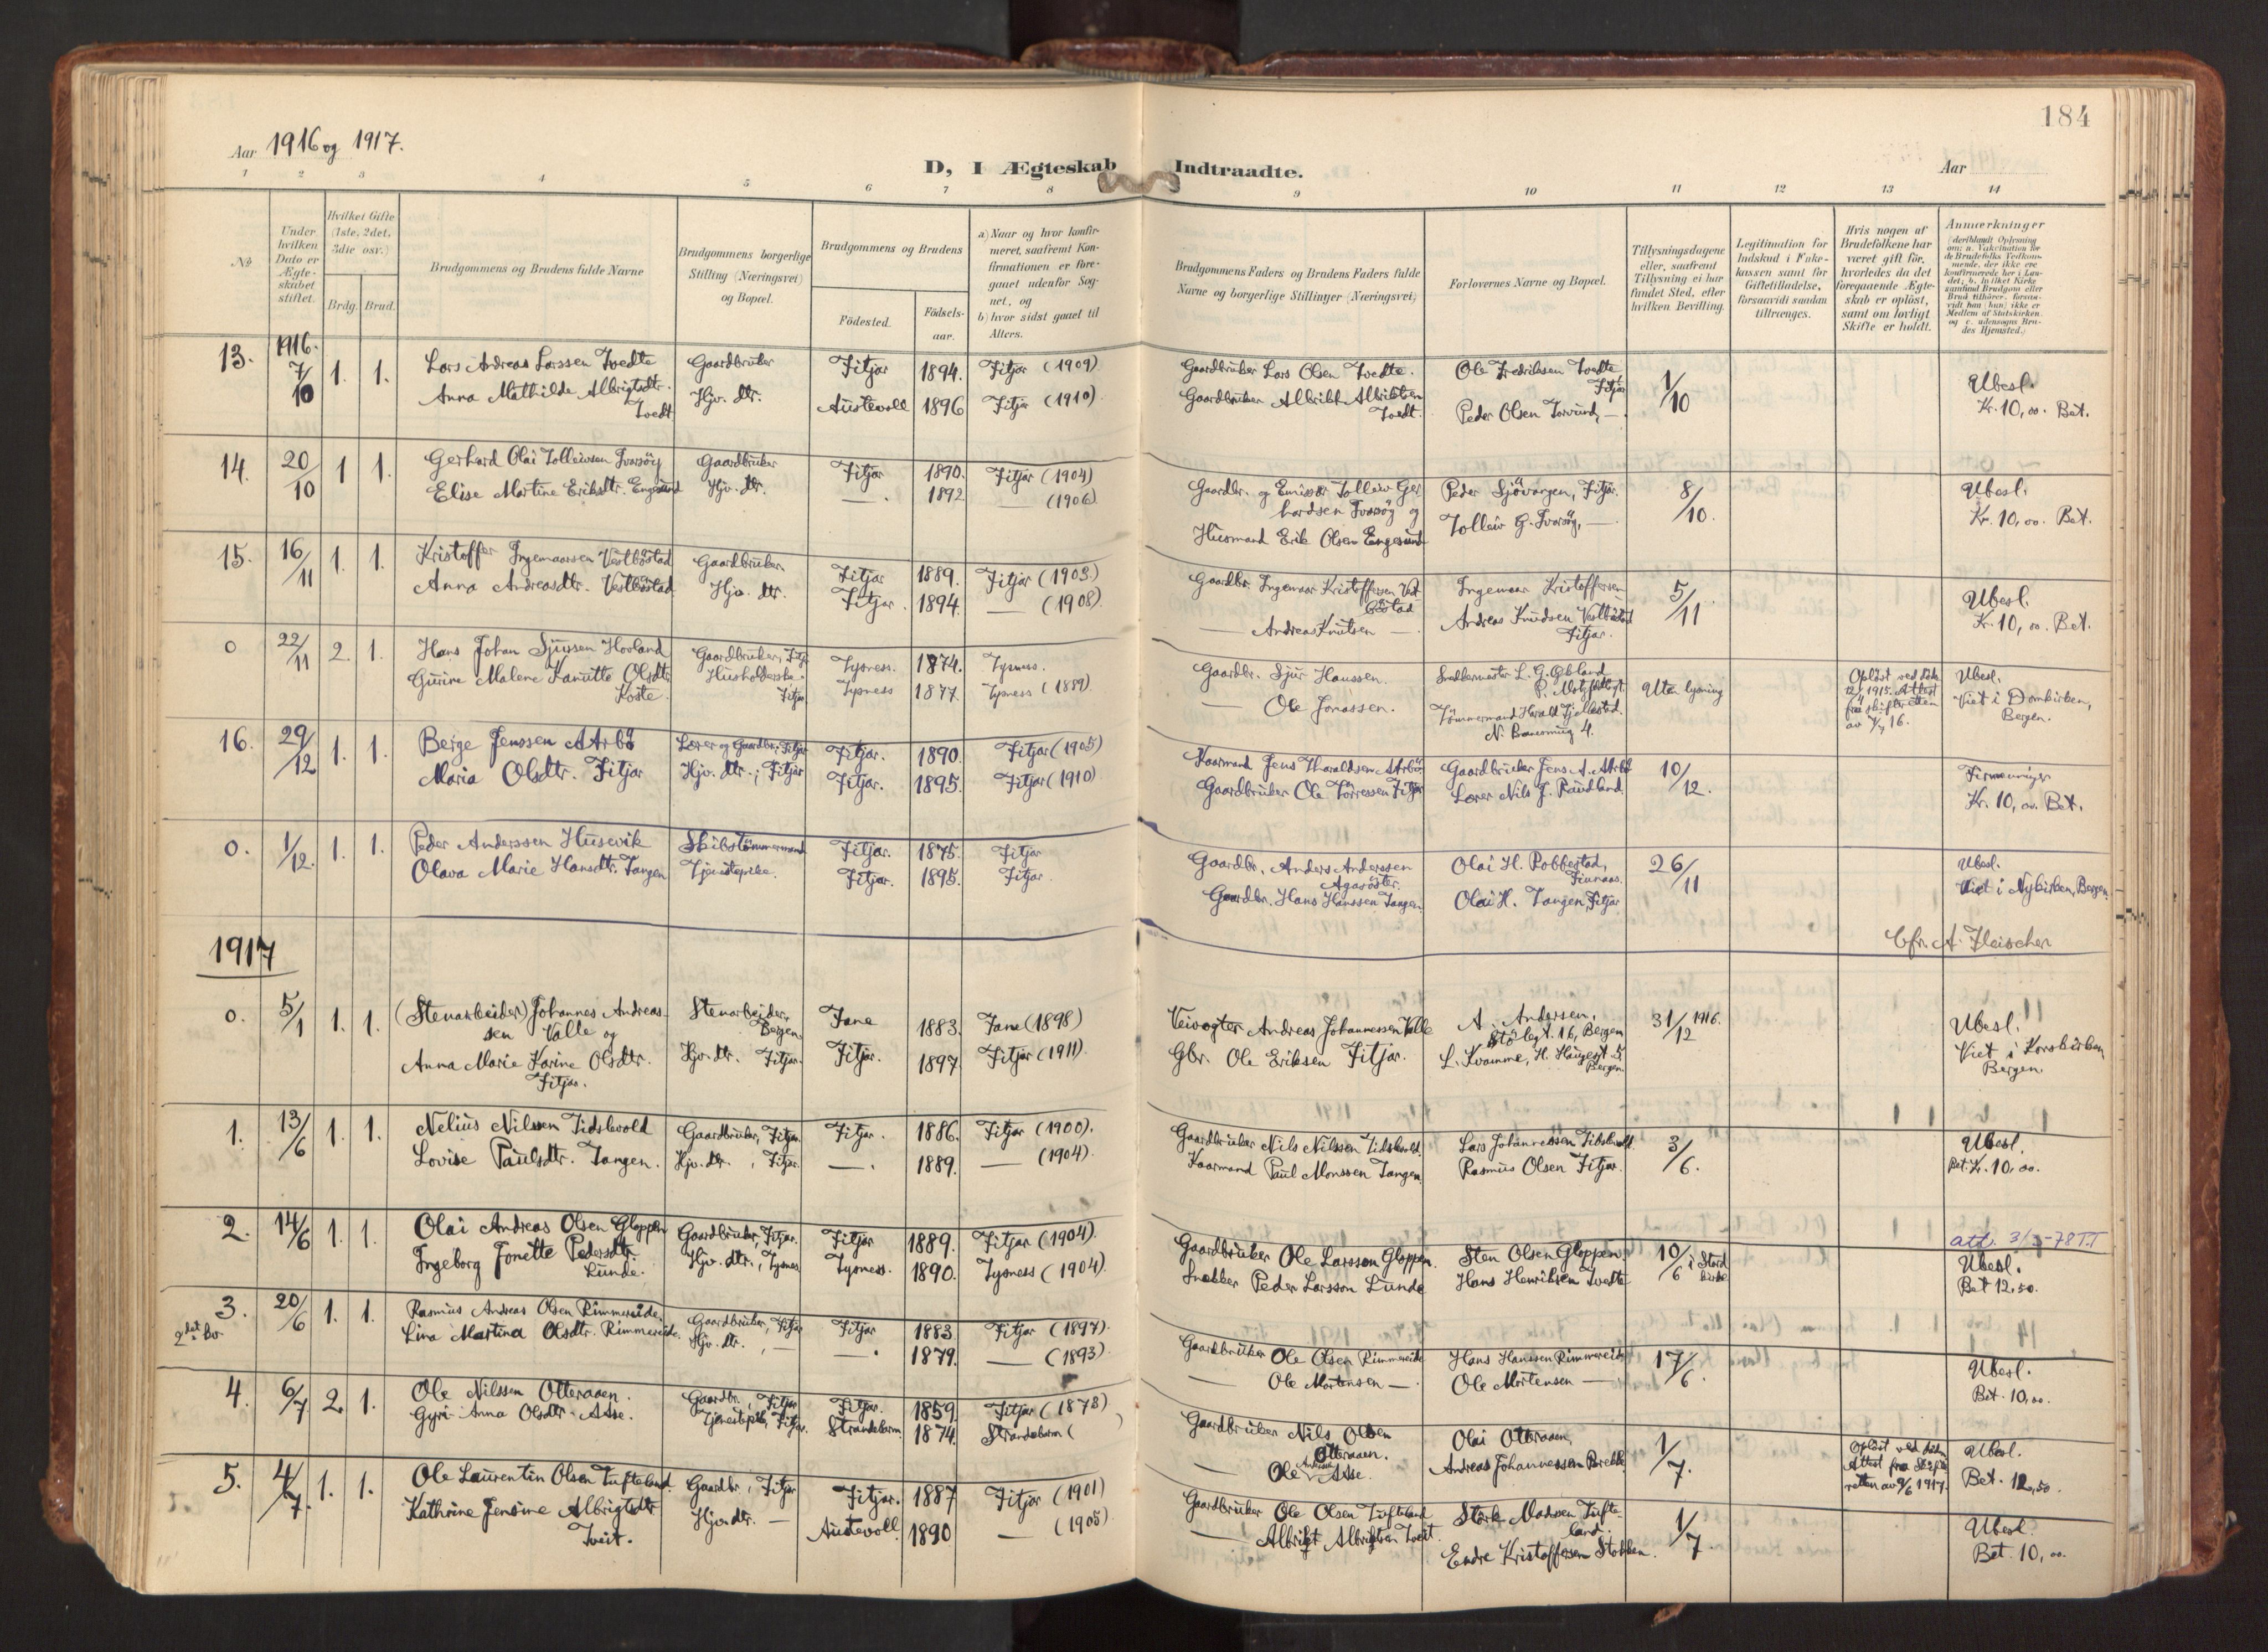 184
Aar 1916 og 1917.
D, I Ægteskab Indtraadte.
Aar
1 2 3 4 5 6 7 8 9 10 11 12 13 14
No.
Under hvilken Dato er Ægteskabet stiftet.
Hvilket Gifte (1ste, 2det, 3die osv.)
Brdg. Brud.
Brudgommens og Brudens fulde Navne
Brudgommens borgerlige Stilling (Næringsvei) og Bopæl.
Brudgommens og Brudens
Födested.
Födselsaar.
a) Naar og hvor konfirmeret, saafremt Konfirmationen er foregaaet udenfor Sognet, og
b) hvor sidst gaaet til Alters.
Brudgommens Faders og Brudens Faders fulde Navne og borgerlige Stillinger (Næringsvei)
Forlovernes Navne og Bopæl.
Tillysningsdagene eller, saafremt Tillysning ei har fundet Sted, efter hvilken Bevilling.
Legitimation for Indskud i Enkekassen samt for Giftetilladelse, forsaavidt saadan tiltrænges.
Hvis nogen af Brudefolkene har været gift för, hvorledes da det foregaaende Ægteskab er oplöst, samt om lovligt Skifte er holdt.
Anmærkninger
(deriblandt Oplysning om: a. Vakcination for de Brudefolks Vedkommende, der ikke ere konfirmerede her i Landet; b. hvilket Kirkesamfund Brudgom eller Brud tilhörer, forsaavidt han (hun) ikke er Medlem af Statskirken, og c. udensogns Brudes Hjemsted.)
13. 1916. 7/10 1. 1. Lars Andreas Larssen Tvedte Gaardbruker Fitjar 1894. Fitjar (1909) Gaardbruker Lars Olsen Tvedte. Ole Fredriksen Tvedte Fitjar 1/10 Ubesl.
Anna Mathilde Albrigtsdtr. Tvedt Hjv. dtr. Austevoll 1896 Fitjar (1910) Gaardbruker Albrikt Albriktsen Tvedt. Peder Olsen Torvund, — Kr. 10,00. Bet.
14. 20/10 1 1. Gerhard Olai Tolleivsen Ivarsöy Gaardbruker Fitjar 1890. Fitjar (1904) Gaardbr. og Emissær Tolleiv Gerhardsen Ivarsöy og Peder Sjövangen, Fitjar. 8/10. Ubesl.
Elise Martine Eriksdtr. Engesund Hjv. dtr. —. 1892 — (1906) Husmand Erik Olsen Engesund Tolleiv G. Ivarsöy, — Kr. 10,00. Bet.
15. 16/11 1. 1. Kristoffer Ingemaarsen Vestböstad Gaardbruker Fitjar 1889. Fitjar (1903.) Gaardbr. Ingemar Kristoffersen Vestböstad Ingemar Kristoffersen 5/11 Ubesl.
Anna Andreasdtr. Vestböstad Hjv. dtr. Fitjar. 1894. — (1908). — Andreas Knutsen — Andreas Knudsen Vestböstad Fitjar. Kr. 10,00. Bet.
0 22/11 2. 1. Hans Johan Sjurssen Hovland Gaardbruker, Fitj. Tysness. 1874. Tysness. Gaardbr. Sjur Hanssen. Snedkermester L. G. Uten lysning Oplöst ved död 12/4 1915. Attest fra skifteretten av 7/7 16. Ubesl.
Gurine Malene Kanutte Olsdtr. Koste. Husholderske. Fitjar Tysness 1877. Tysness (1889) — Ole Jonassen. Tömmermand Harald Fjellestad. 4. Viet i Domkirken, Bergen.
16. 29/12 1. 1. Berge Jenssen Aarbö Lærer og Gaardbr., Fitjar Fitjar. 1890. Fitjar (1905) Kaarmand Jens Haraldsen Aarbö Gaardbruker Jens A. Aarbö 10/12.
Maria Olsdtr. Fitjar Hjv. dtr.; Fitjar Fitjar. 1895. Fitjar (1910) Gaardbruker Ole Törressen Fitjar Lærer Nils J. Raudland. Kr. 10,00. Bet.
0. 1/12. 1. 1. Peder Anderssen Husevik Skibstömmermand Fitjar. 1875. Fitjar Gaardbr. Anders Anderssen Agasöster. Olai H. Robbestad, Finnaas. 26/11 Ubesl.
Olava Marie Hansdtr. Tangen Tjenstepike. Fitjar. 1895. Fitjar. Gaardbr. Hans Hanssen Tangen. Olai H. Tangen, Fitjar Viet i Nykirken, Bergen.
Cfr. A. Fleischer
1917
0. 5/1 1. 1. (Stenarbeider) Johannes Andreassen Valle og Stenarbeider, Bergen. Fane 1883. Fane (1898) Veivogter Andreas Johannessen Valle A. Andersen, Stöleg. 16, Bergen 31/12 1916. Ubesl.
Anna Marie Karine Olsdtr. Fitjar. Hjv. dtr. Fitjar. Fitjar. 1897 Fitjar (1911) Gbr. Ole Eriksen Fitjar. L. Kvamme, H. Haugegt 5 Bergen. Viet i Korskirken, Bergen
1. 13/6 1. 1. Nelius Nilssen Tislevold Gaardbruker, Fitjar. Fitjar. 1886. Fitjar (1900). Gaardbruker Nils Nilssen Tidslevold. Lars Johannessen Tislevoll 3/6. Ubesl.
Lovise Paulsdtr. Tangen. Hjv. dtr., Fitjar. —. 1889. — (1904). Kaarmand Paul Monssen Tangen. Rasmus Olsen Fitjar. Bet. Kr. 10,00.
2. 14/6 1. 1. Olai Andreas Olsen Gloppen Gaardbruker, Fitjar. Fitjar 1889. Fitjar (1904). Gaardbruker Ole Larsson Gloppen. Sten Olsen Gloppen. 10/6 i Stord kirke att. 3/3-78 T.T
Ingeborg Jonette Pedersdtr. Lunde. Hjv. dtr., Tysnes Tysness. 1890. Tysness (1904). Snekker Peder Larsson Lunde Hans Henriksen Tvedte Ubesl. Bet 12,50.
3. 20/6 1. 1. Rasmus Andreas Olsen Rimmereide. Gaardbruker, Fitjar Fitjar 1883 Fitjar (1897). Gaardbruker Ole Olsen Rimmereide Hans Hanssen Rimmereide 17/6. Ubesl.
2det Lina Martina Olsdtr. Rimmereide. Hjv. dtr., — —. 1879. — (1893). — Ole Mortensen —. Ole Mortensen — Bet. 10,00.
4. 6/7 2. 1. Ole Nilssen Otteraaen. Gaardbr., Fitjar Fitjar. 1859. Fitjar (1873) Gaardbruker Nils Olsen Otteraaen. Olai Otteraaen, 1/7. Oplöst ved döden Attest fra Skifteretten av 9/6 1917. Ubesl.
Gyri Anna Olsdtr. Aase. Tjenestepike, Fitjar. Strandebarm. 1874. Strandebarm ( ) — Ole Aase. Andreas Johannessen Brekke Bet. 12,50.
5. 4/7. 1. 1. Ole Laurentin Olsen Tufteland. Gaardbr., Fitjar Fitjar. 1887 Fitjar (1901) Gaardbruker Ole Olsen Tufteland Störk Madssen Tufteland. 1/7. Ubesl.
Kathrine Jensine Albrigtsdtr Tveit. Hjv. dtr. — Austevoll 1890 — (1905) — Albrigt Albrigtsen Tveit. Endre Kristoffersen Stokken. Bet. 10,00.